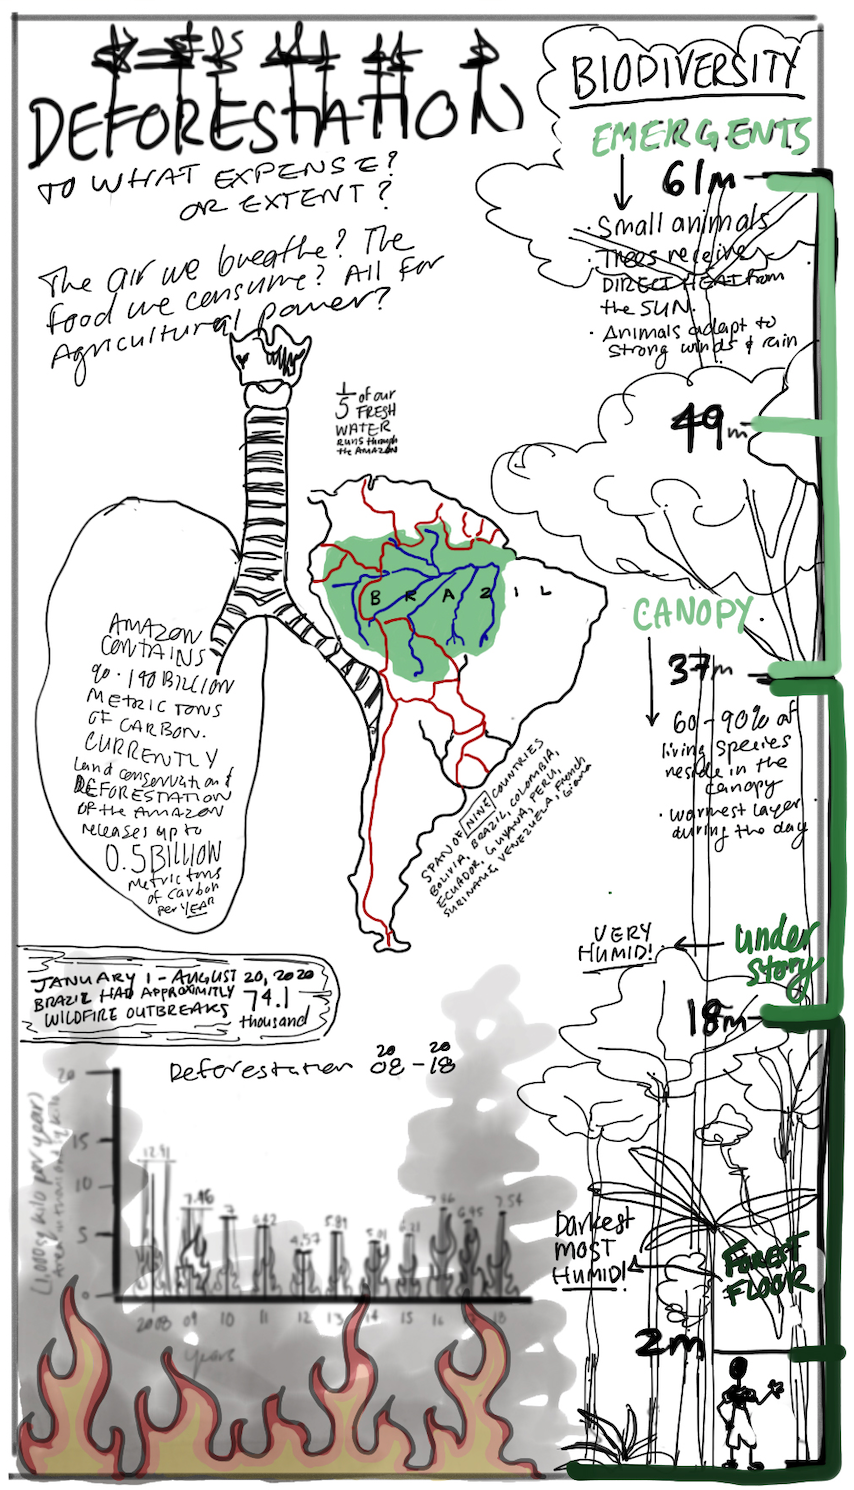 DEFORESTATION
TO WHAT EXPENSE?
OR EXTENT?
The air we breathe? The
food we consume? All for
Agricultural power?
1/5 of our
FRESH
WATER
runs through
the AMAZON
BRAZIL
AMAZON
CONTAINS
90-140 BILLION
METRIC TONS
OF CARBON.
CURRENTLY
land conservation &
DEFORESTATION
OF the AMAZON
releases up to
0.5 BILLION
metric tons
of carbon
per YEAR
SPAN OF NINE COUNTRIES
BOLIVIA, BRAZIL, COLOMBIA,
ECUADOR, GUYANA, PERU,
SURINAME, VENEZUELA, French
Giana
JANUARY 1 - AUGUST 20, 2020
BRAZIL HAD APPROXIMITLY 74.1
WILDFIRE OUTBREAKS thousand
Deforestation 2008-2018
(1,000 sq kilo per year)
20
15
10
5
0
12.91
7.46
7
6.42
4.57
5.89
5.01
6.21
6.95
7.54
2008
09
10
11
12
13
14
15
16
18
years
BIODIVERSITY
EMERGENTS
61m
· Small animals
· Trees receive
DIRECT HEAT from
the SUN.
· Animals adapt to
strong winds & rain
49m
CANOPY
37m
60-90% of
living species
reside in the
canopy
· warmest layer
during the day
VERY
HUMID!
under
story
18m
Darkest
most
HUMID!
FOREST
FLOOR
2m